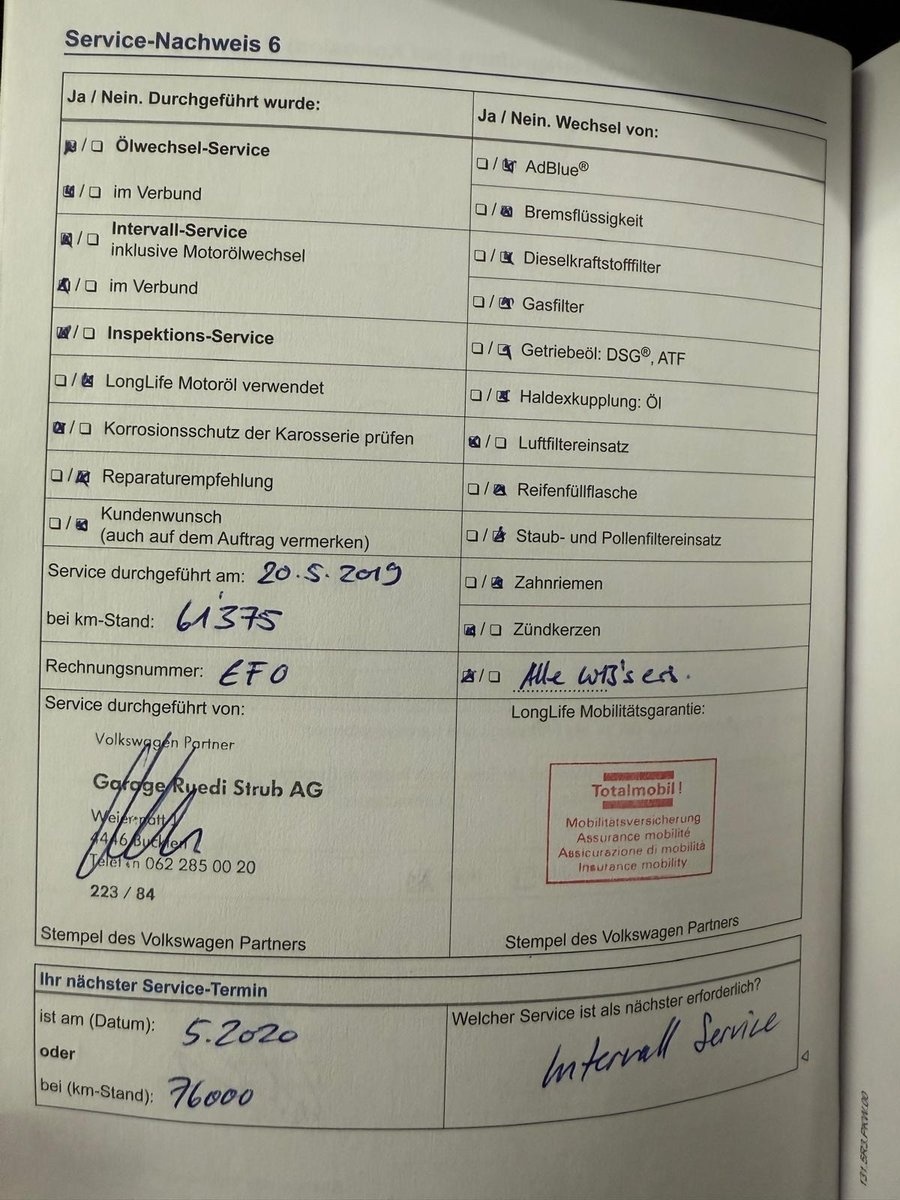 Service-Nachweis 6
Ja / Nein. Durchgeführt wurde:
Ölwechsel-Service
im Verbund
Intervall-Service
inklusive Motorölwechsel
im Verbund
Inspektions-Service
LongLife Motoröl verwendet
Korrosionsschutz der Karosserie prüfen
Reparaturempfehlung
Kundenwunsch
(auch auf dem Auftrag vermerken)
Service durchgeführt am: 20.5.2019
bei km-Stand: 61'375
Rechnungsnummer: EFO
Service durchgeführt von:
Volkswagen Partner
Garage Ruedi Strub AG
Telefon 062 285 00 20
223 / 84
Stempel des Volkswagen Partners
Ja / Nein. Wechsel von:
AdBlue®
Bremsflüssigkeit
Dieselkraftstofffilter
Gasfilter
Getriebeöl: DSG®, ATF
Haldexkupplung: Öl
Luftfiltereinsatz
Reifenfüllflasche
Staub- und Pollenfiltereinsatz
Zahnriemen
Zündkerzen
Alle WB's ers.
LongLife Mobilitätsgarantie:
Totalmobil!
Mobilitätsversicherung
Assurance mobilité
Assicurazione di mobilità
Insurance mobility
Stempel des Volkswagen Partners
Ihr nächster Service-Termin
ist am (Datum): 5.2020
oder
bei (km-Stand): 76000
Welcher Service ist als nächster erforderlich?
Intervall Service
131.5R3.PKW.00